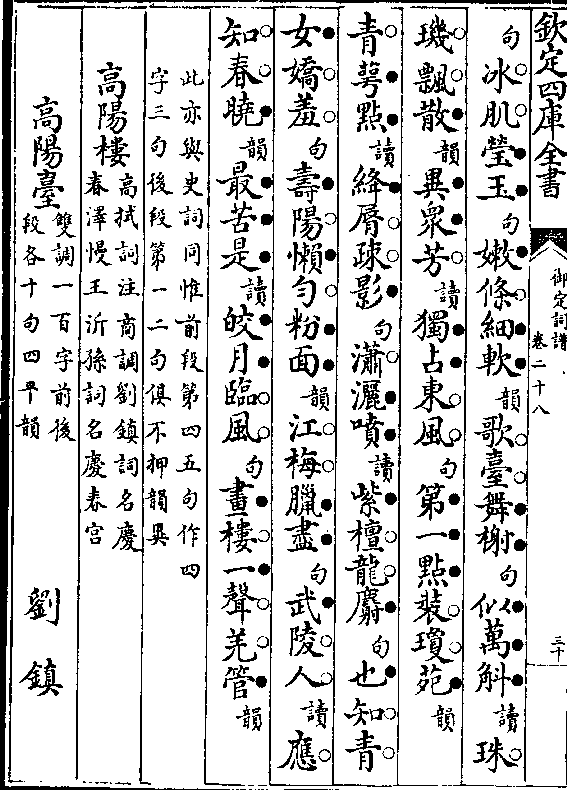 欽定四庫全書 御定詞譜 卷二十八 三十
句冰肌瑩玉句嫩條細軟韻歌臺舞榭句似萬斛讀珠
璣飄散韻異衆芳讀獨占東風句第一點裝瓊苑韻
青萼點讀絳脣疎影句瀟灑噴讀紫檀龍麝句也知青
女嬌羞句壽陽懶勻粉面韻江梅臘盡句武陵人讀應
知春曉韻最苦是讀皎月臨風句畫樓一聲羌管韻
此亦與史詞同惟前段第四五句作四
字三句後段第一二句俱不押韻異
高陽樓 高拭詞注商調劉鎮詞名慶
春澤慢王沂孫詞名慶春宫
高陽臺 雙調一百字前後
段各十句四平韻
劉鎮